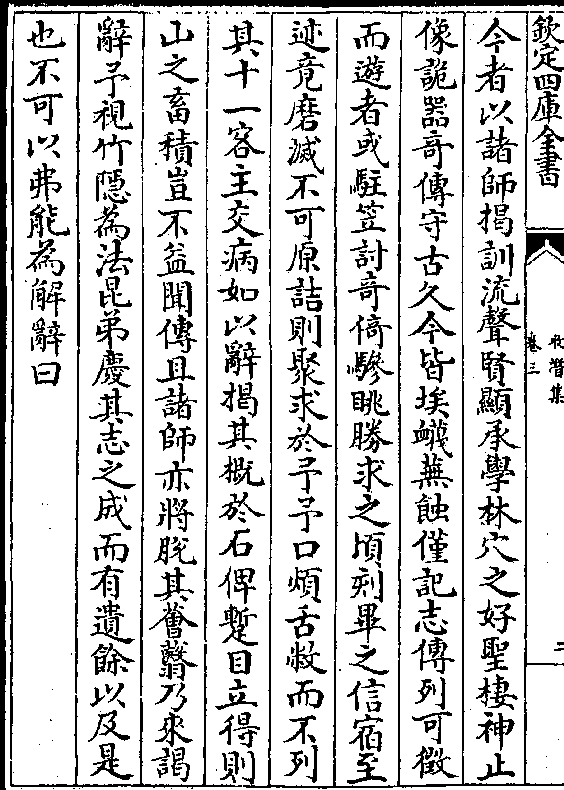 欽定四庫全書
牧潛集
卷三
二
今者以諸師揭訓流聲賢顯承學林穴之好聖棲神止
像詭器奇傳守古久今皆埃蠛蕪蝕僅記志傳列可徵
而遊者或駐笠討奇倚驂眺勝求之頃刻畢之信宿至
迹竟磨滅不可原詰則聚求於予予口煩舌敝而不列
其十一客主交病如以辭揭其概於石俾蹔目立得則
山之畜積豈不益聞傳且諸師亦將脫其翳乃來謁
辭予視竹隱為法昆弟慶其志之成而有遺餘以及是
也不可以弗能為解辭曰